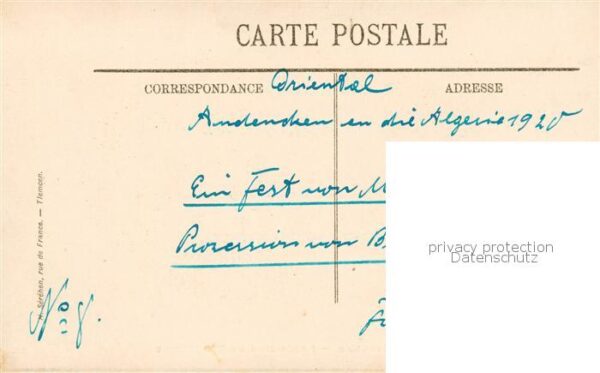 CARTE POSTALE
CORRESPONDANCE
ADRESSE
Oriental
Andencken en die Algerie 1920
Ein Fest von M
Prozession von B
No 8.
rue de France. — Tlemcen.
privacy protection
Datenschutz